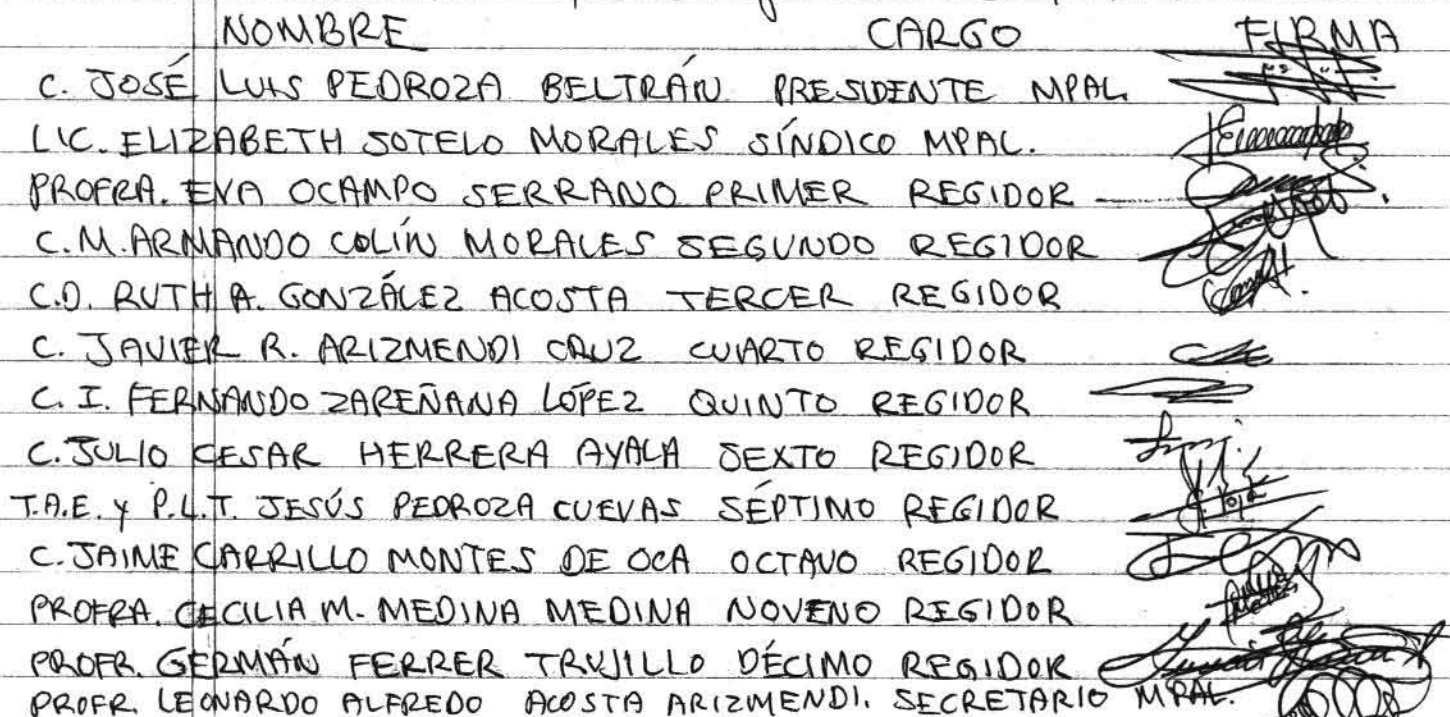 NOMBRE CARGO FIRMA
C. JOSÉ LUIS PEDROZA BELTRÁN PRESIDENTE MPAL
LIC. ELIZABETH SOTELO MORALES SÍNDICO MPAL.
PROFRA. EVA OCAMPO SERRANO PRIMER REGIDOR
C.M. ARMANDO COLÍN MORALES SEGUNDO REGIDOR
C.D. RUTH A. GONZÁLEZ ACOSTA TERCER REGIDOR
C. JAVIER R. ARIZMENDI CRUZ CUARTO REGIDOR
C. I. FERNANDO ZAREÑANA LÓPEZ QUINTO REGIDOR
C. JULIO CESAR HERRERA AYALA SEXTO REGIDOR
T.A.E. y P.L.T. JESÚS PEDROZA CUEVAS SÉPTIMO REGIDOR
C. JAIME CARRILLO MONTES DE OCA OCTAVO REGIDOR
PROFRA. CECILIA M. MEDINA MEDINA NOVENO REGIDOR
PROFR. GERMÁN FERRER TRUJILLO DÉCIMO REGIDOR
PROFR. LEONARDO ALFREDO ACOSTA ARIZMENDI. SECRETARIO MPAL.